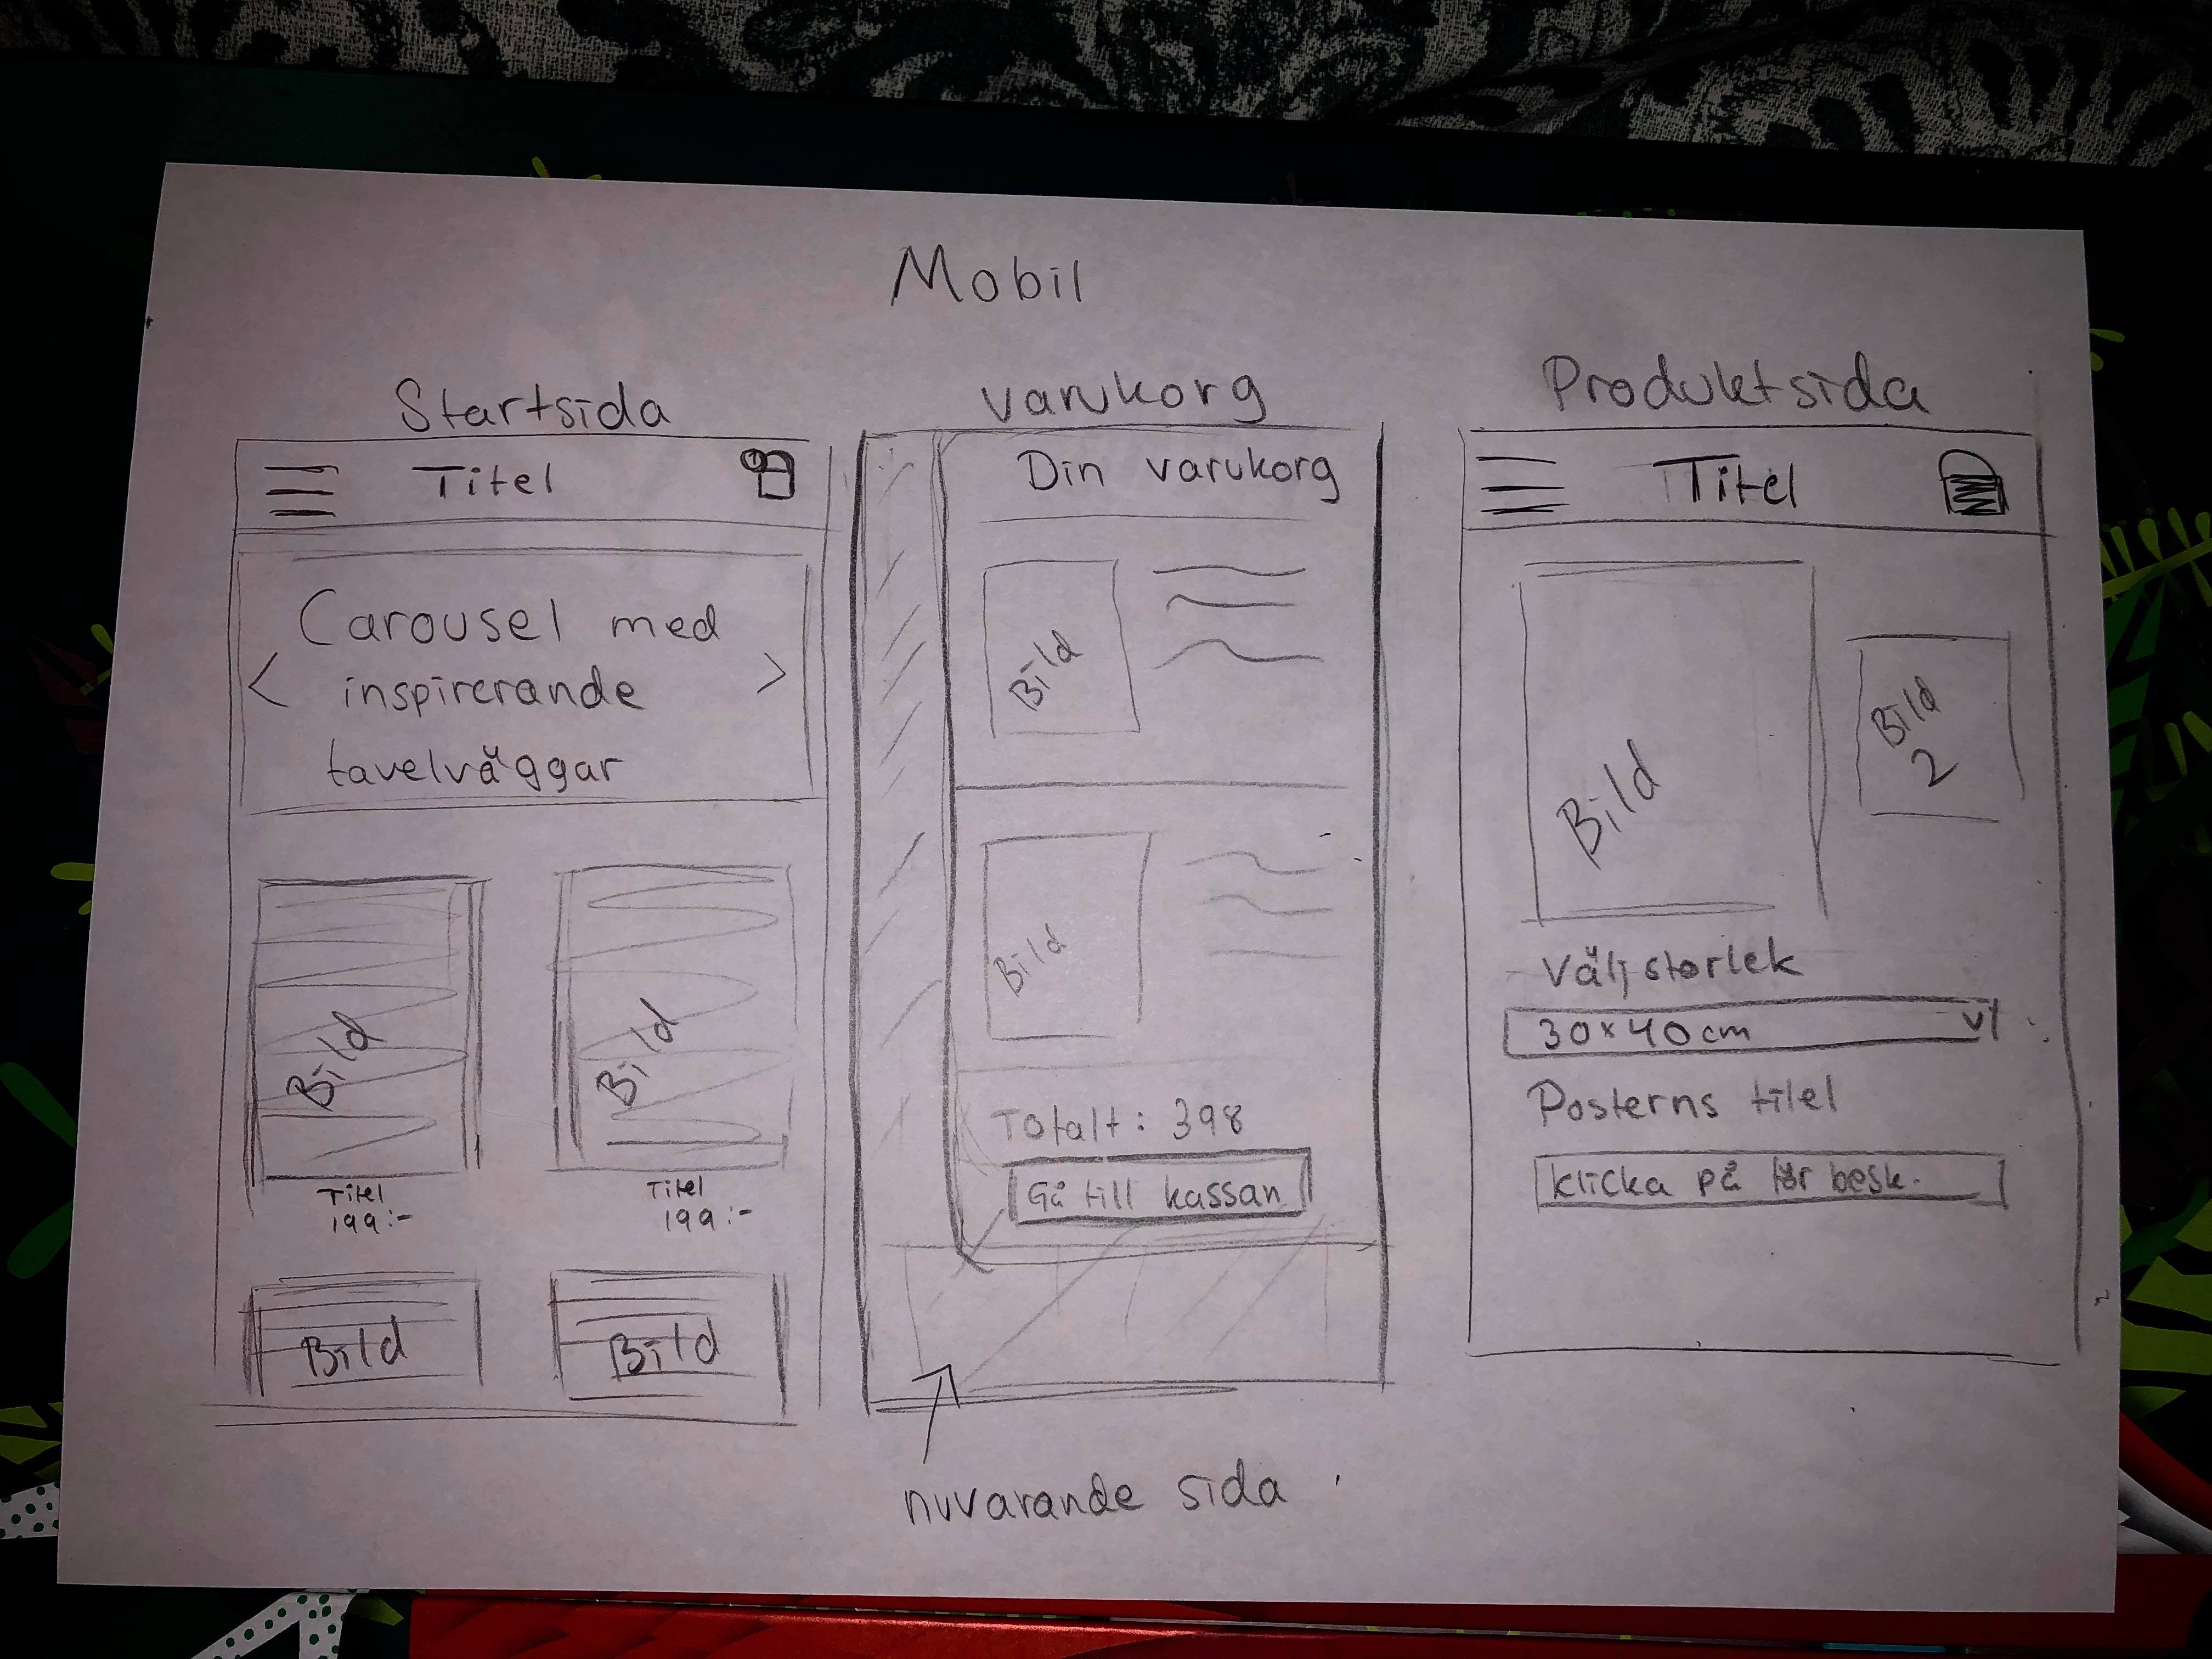 Mobil
Startsida
Titel
Carousel med
< inspirerande >
tavelväggar
Bild
Bild
Titel
199:-
Titel
199:-
Bild
Bild
varukorg
Din varukorg
Bild
Bild
Totalt: 398
Gå till kassan
nuvarande sida
Produktsida
Titel
Bild
Bild
2
Välj storlek
30x40cm
Posterns titel
klicka på för besk.